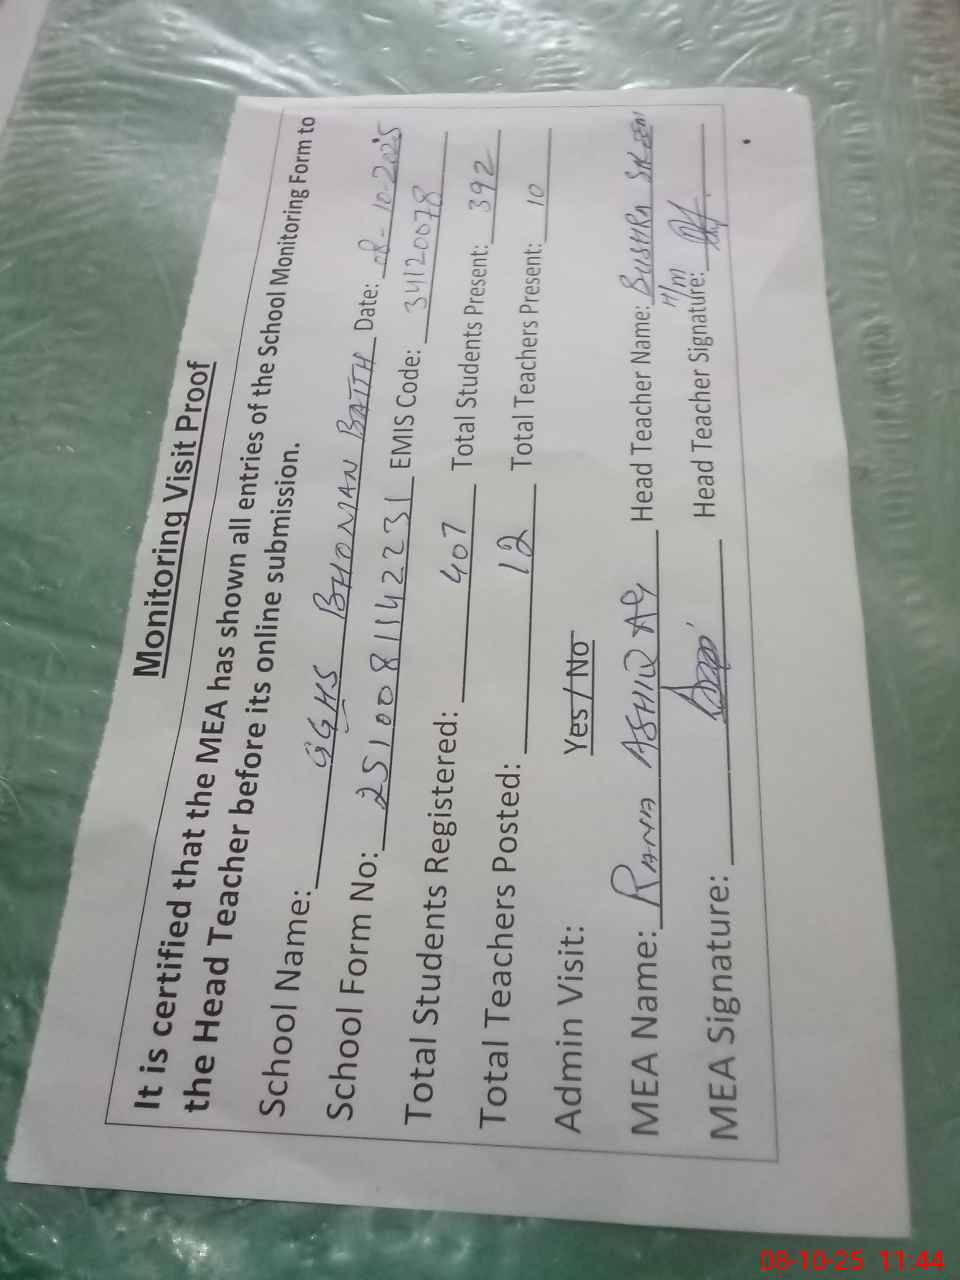 Monitoring Visit Proof
It is certified that the MEA has shown all entries of the School Monitoring Form to
the Head Teacher before its online submission.
School Name: GGHS BHOMAN BATTH Date: 08-10-2025
School Form No: 2510081142231 EMIS Code: 34120078
Total Students Registered: 407 Total Students Present: 392
Total Teachers Posted: 12 Total Teachers Present: 10
Admin Visit: Yes / No
MEA Name: RANA ASHIQ Head Teacher Name: BUSHRA
H/M
MEA Signature: Head Teacher Signature:
08-10-25 11:44